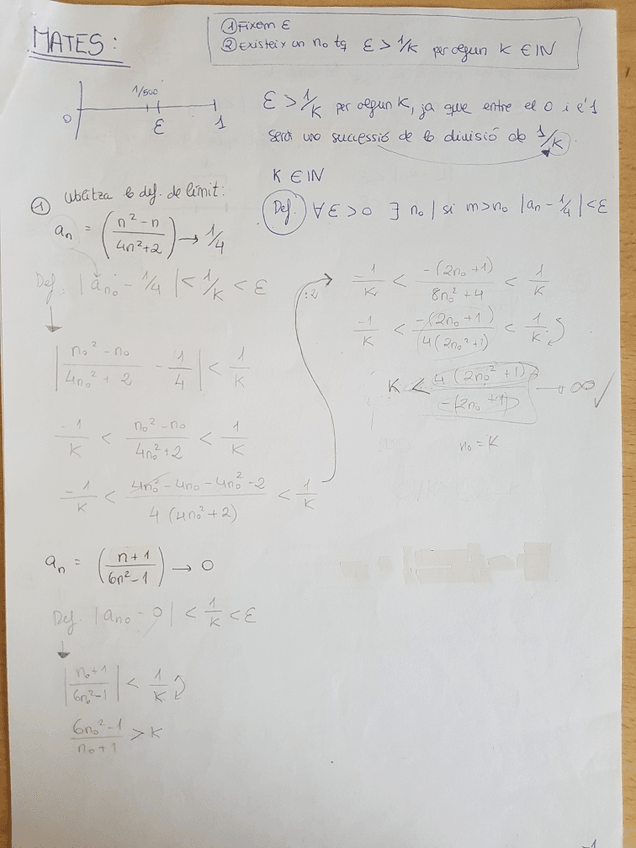 MATES:
① Fixem ε
② Existeix un n₀ tq ε > 1/K per algun K ∈ IN
1/500
0 ε 1
ε > 1/K per algun K, ja que entre el 0 i el 1
serà una successió de la divisió de 1/K
K ∈ IN
Def. ∀ε>0 ∃ n₀ | si m>n₀ |an - 1/4| < ε
① Utilitza la def. de límit:
an = ((n² - n)/(4n² + 2)) → 1/4
Def. |an₀ - 1/4| < 1/K < ε
|(n₀² - n₀)/(4n₀² + 2) - 1/4| < 1/K
-1/K < (n₀² - n₀)/(4n₀² + 2) < 1/K
-1/K < (4n₀² - 4n₀ - 4n₀² - 2)/(4(4n₀² + 2)) < 1/K
:2
-1/K < (-(2n₀ + 1))/(8n₀² + 4) < 1/K
-1/K < (-(2n₀ + 1))/(4(2n₀² + 1)) < 1/K
K < (4(2n₀² + 1))/(-(2n₀ + 1)) → ∞ ✓
n₀ = K
an = ((n + 1)/(6n² - 1)) → 0
Def. |an₀ - 0| < 1/K < ε
|(n₀ + 1)/(6n₀² - 1)| < 1/K
(6n₀² - 1)/(n₀ + 1) > K